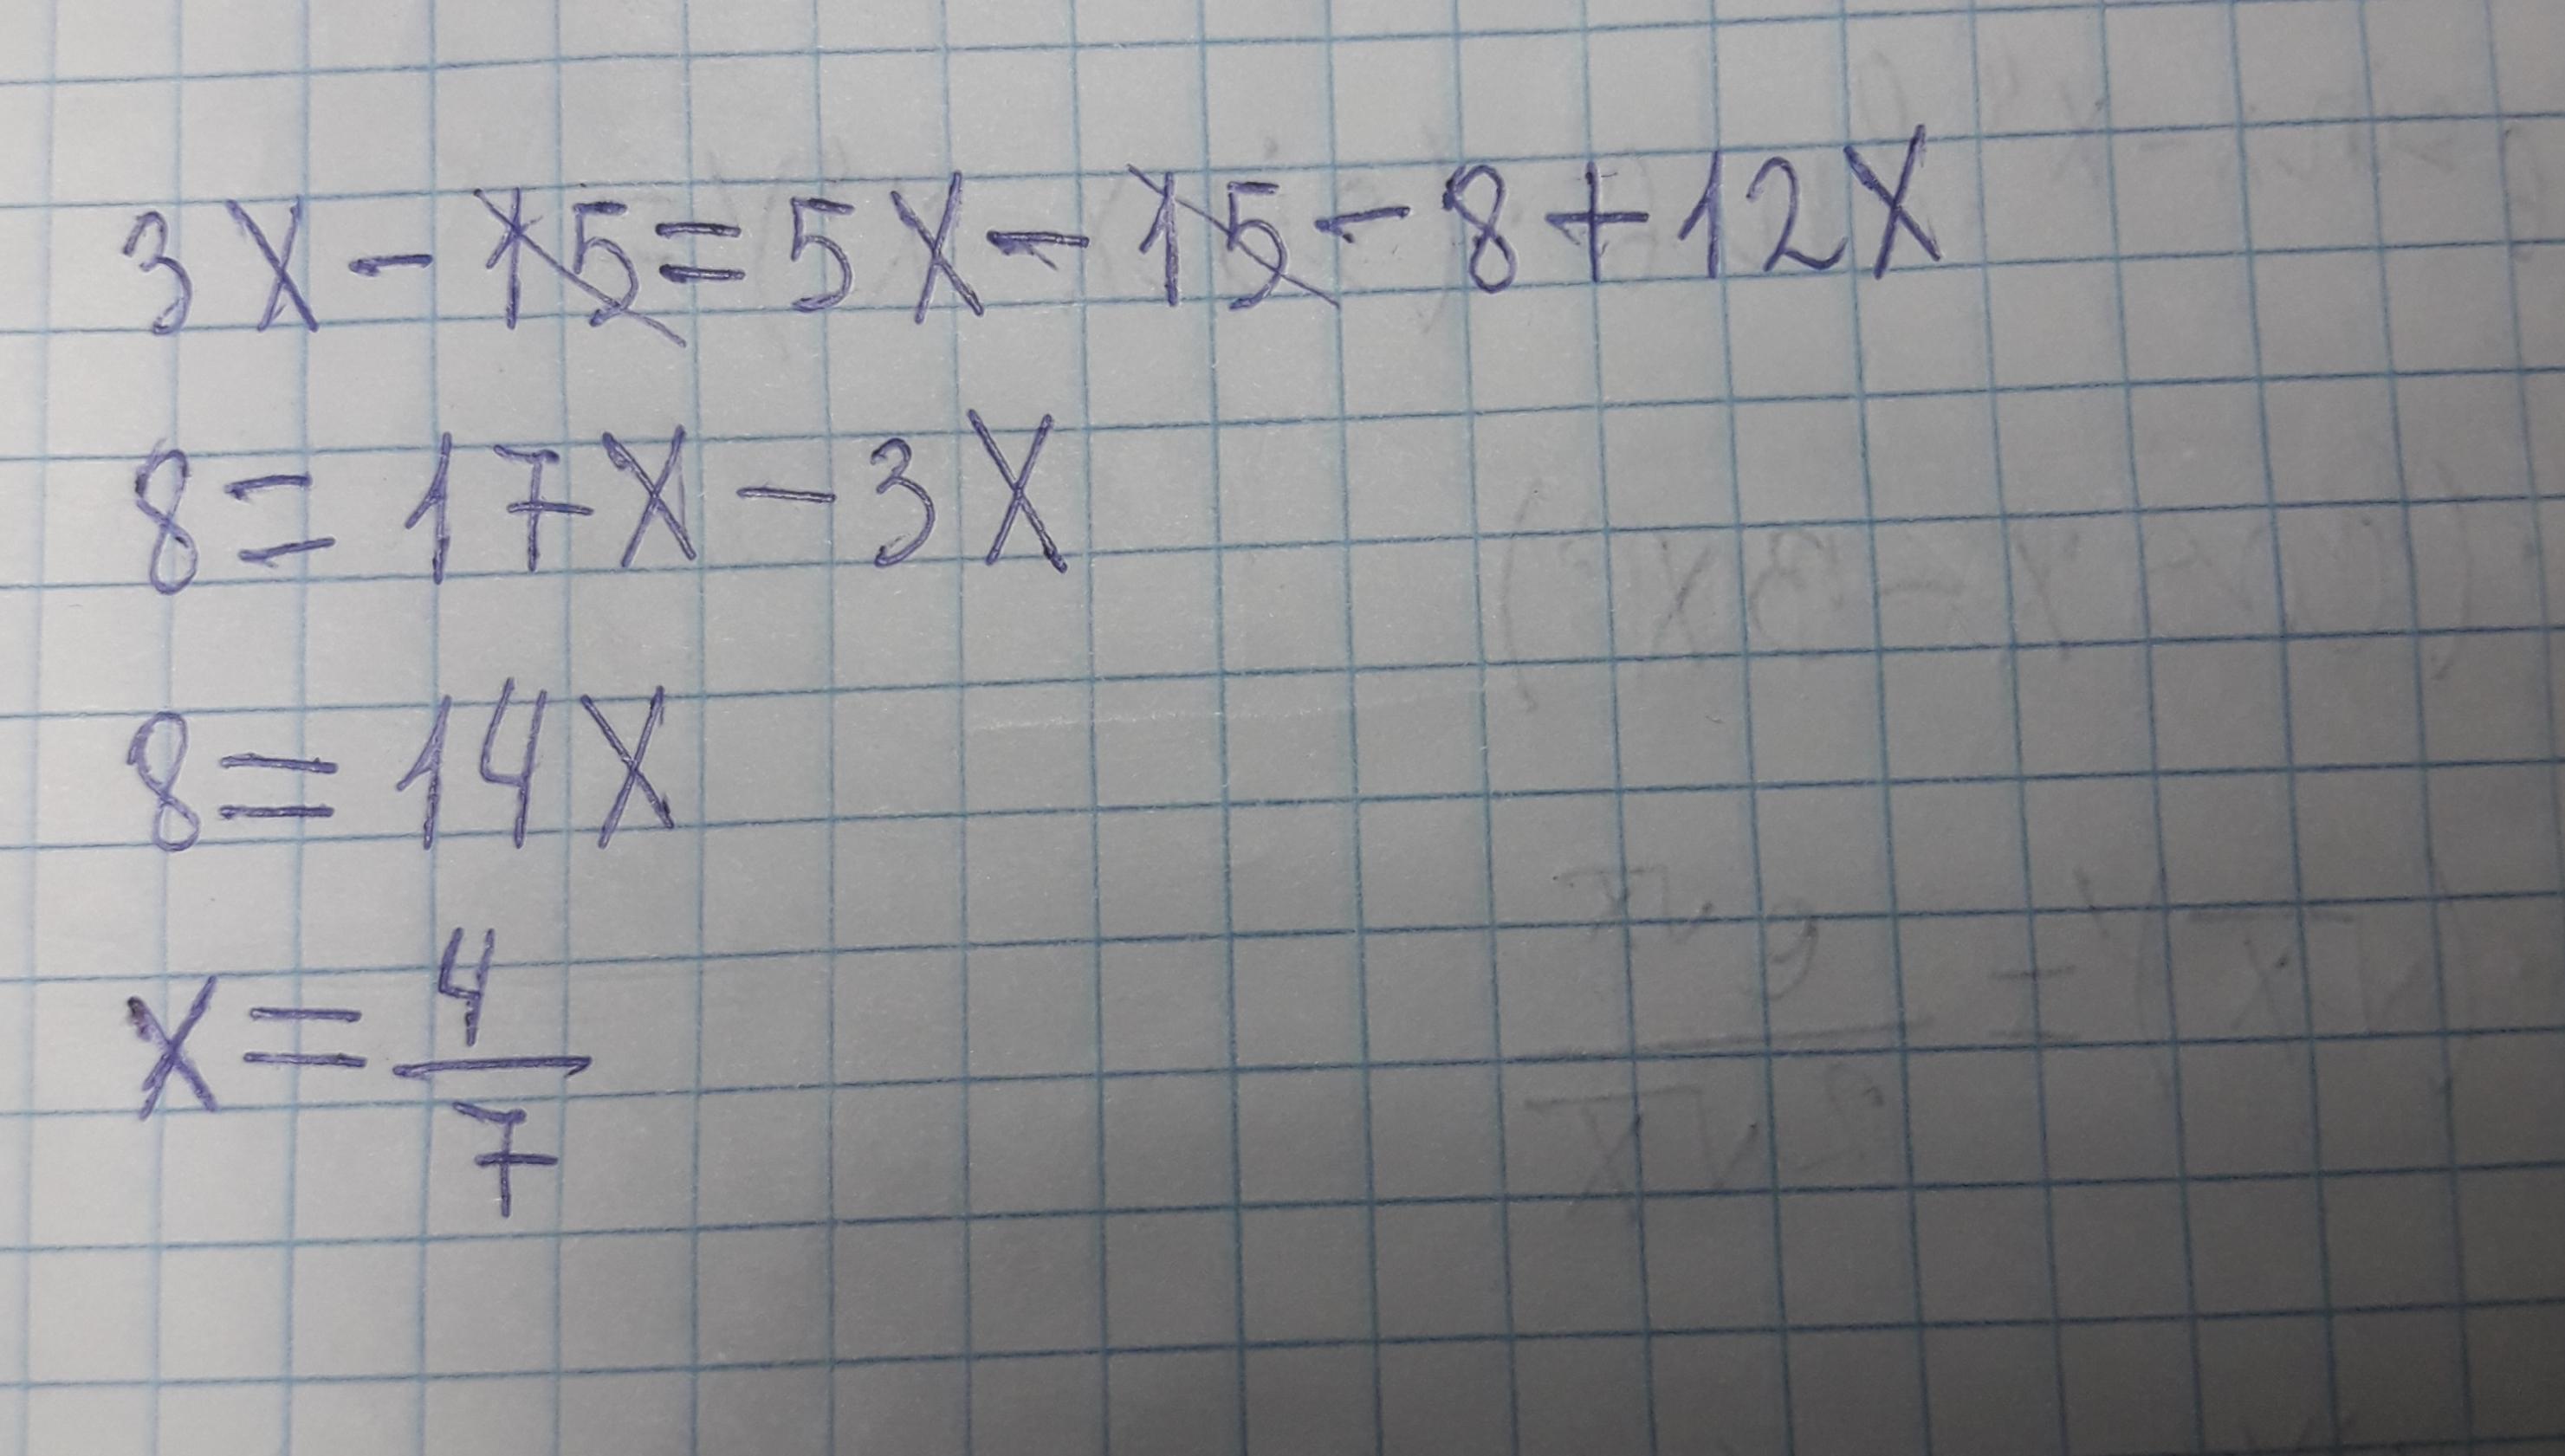 3x - 15 = 5x - 15 - 8 + 12x
8 = 17x - 3x
8 = 14x
x = 4/7